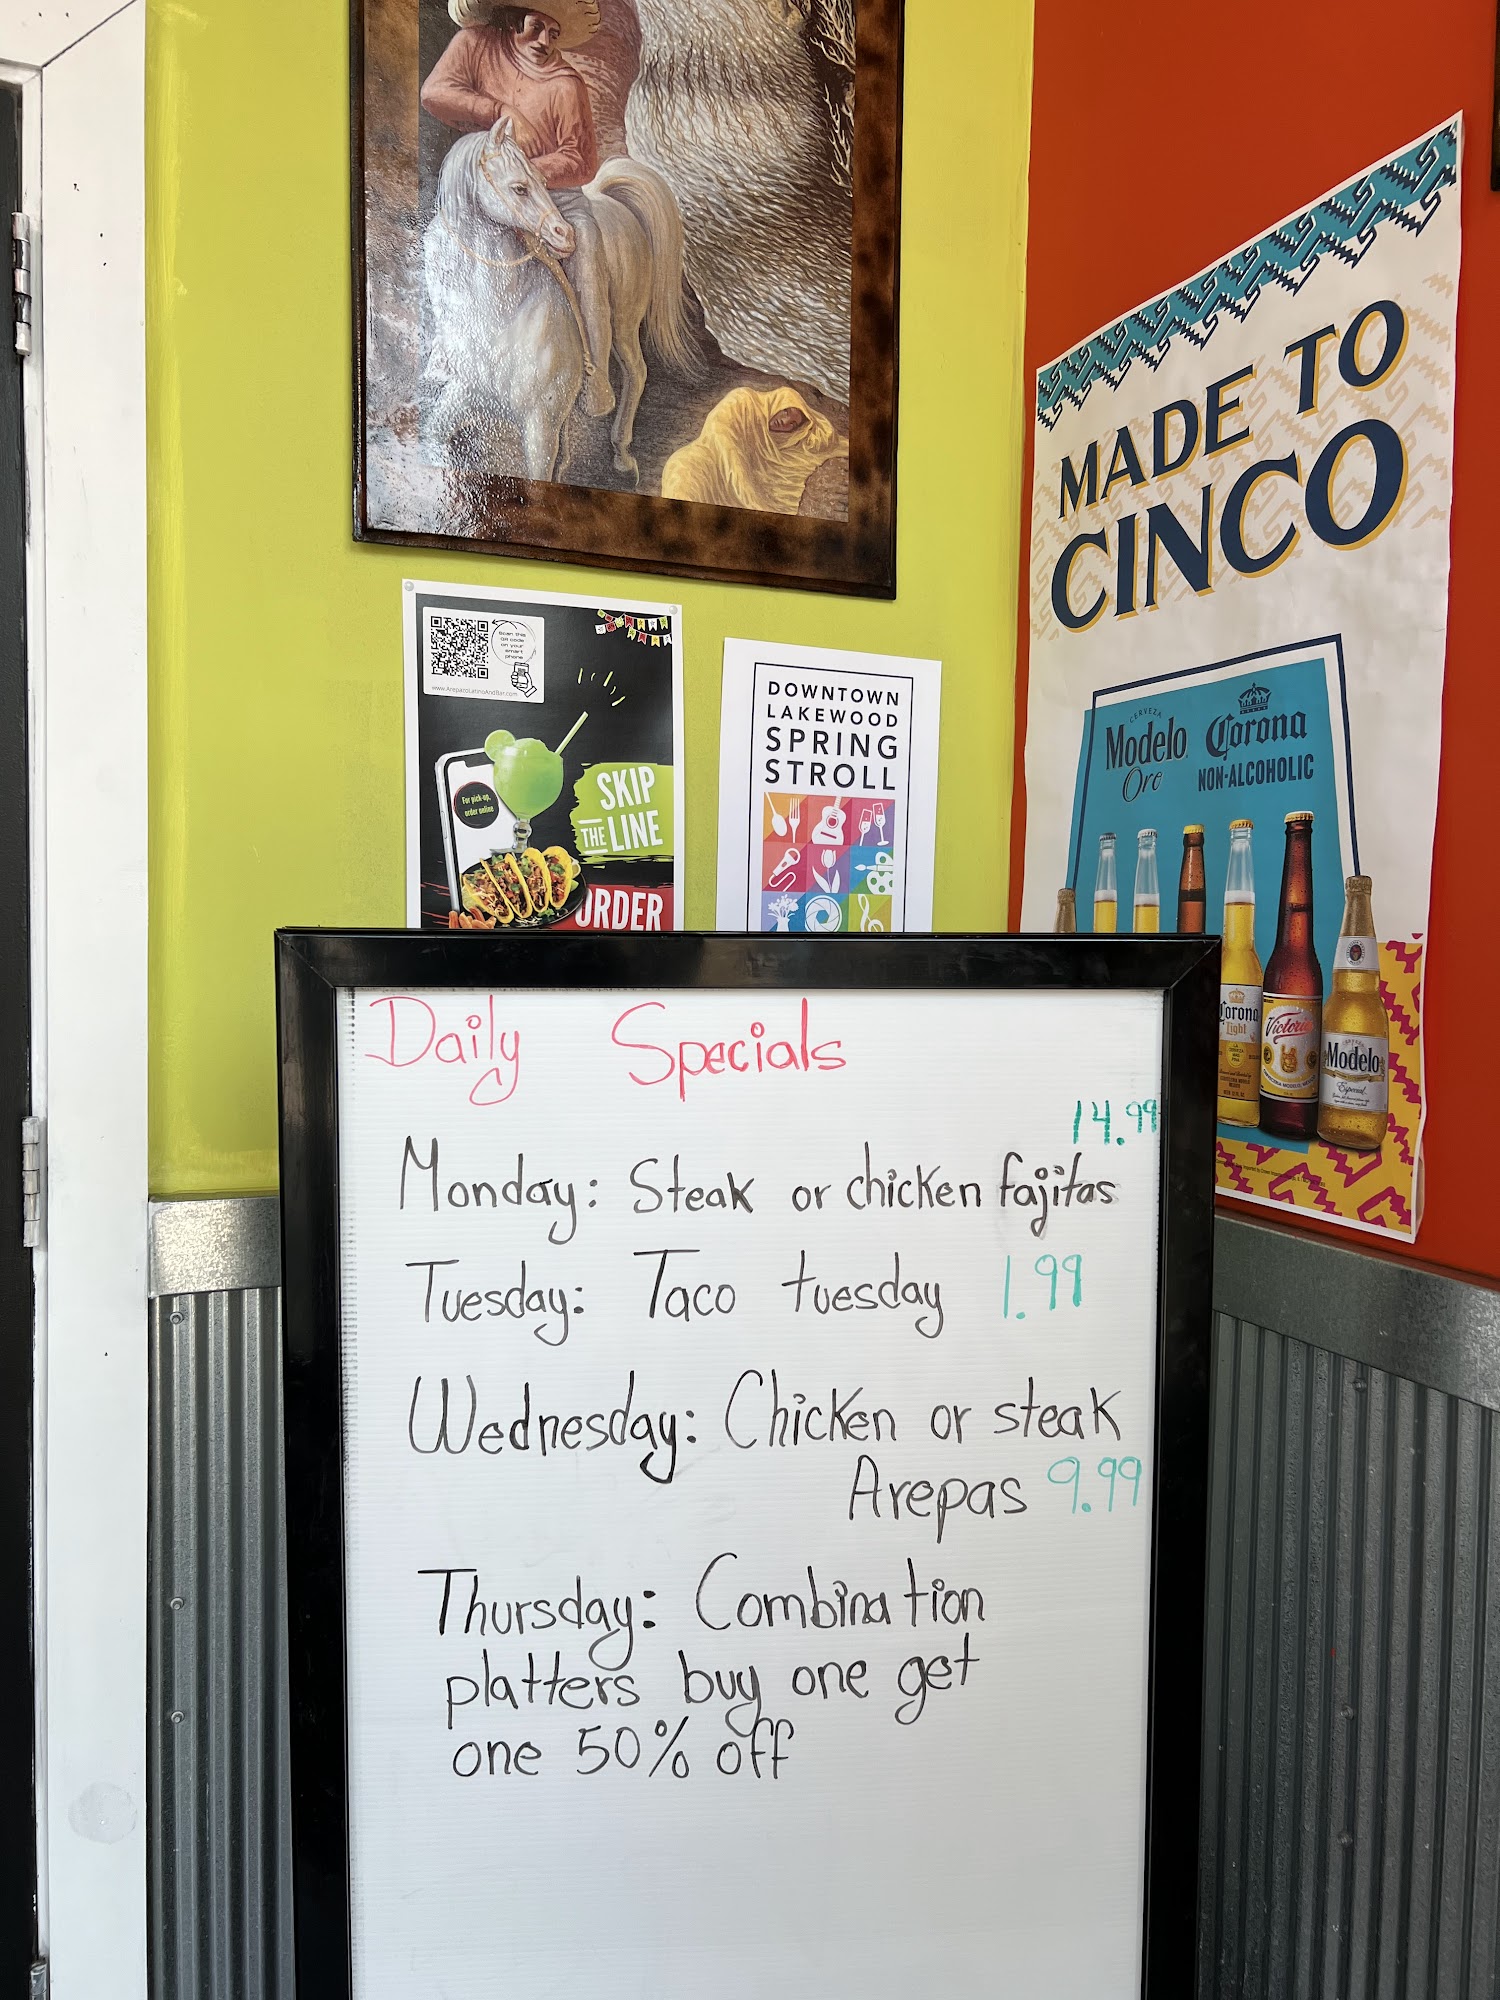 Scan this
QR code
on your
smart
phone
www.ArepazoLatinoAndBar.com
For pick-up,
order online
SKIP
THE LINE
ORDER
DOWNTOWN
LAKEWOOD
SPRING
STROLL
MADE TO
CINCO
CERVEZA
Modelo
Oro
Corona
NON-ALCOHOLIC
Corona
Light
Victoria
Modelo
Especial
Daily Specials
14.99
Monday: Steak or chicken fajitas
Tuesday: Taco tuesday 1.99
Wednesday: Chicken or steak
Arepas 9.99
Thursday: Combination
platters buy one get
one 50% off